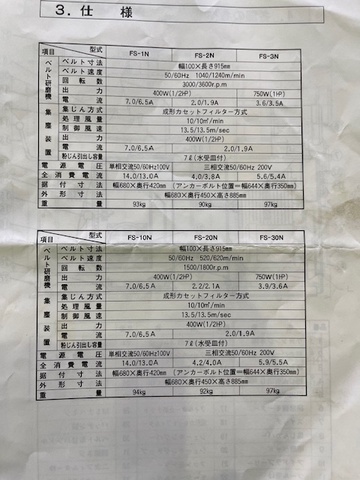 3. 仕 様
項目 型式 FS-1N FS-2N FS-3N
ベルト研磨機 ベルト寸法 幅100×長さ915mm
ベルト速度 50/60Hz 1040/1240m/min
回転数 3000/3600r.p.m
出力 400W(1/2HP) 750W(1HP)
電流 7.0/6.5A 2.0/1.9A 3.6/3.5A
集塵装置 集じん方式 成形カセットフィルター方式
処理風量 10/10㎥/min
制御風速 13.5/13.5m/sec
出力 400W(1/2HP)
電流 7.0/6.5A 2.0/1.9A
粉じん引出し容量 7ℓ(水受皿付)
電源電圧 単相交流50/60Hz100V 三相交流50/60Hz 200V
全消費電流 14.0/13.0A 4.0/3.8A 5.6/5.4A
据付寸法 幅680×奥行420mm (アンカーボルト位置=幅644×奥行350mm)
外形寸法 幅680×奥行450×高さ885mm
重量 93kg 90kg 97kg
項目 型式 FS-10N FS-20N FS-30N
ベルト研磨機 ベルト寸法 幅100×長さ915mm
ベルト速度 50/60Hz 520/620m/min
回転数 1500/1800r.p.m
出力 400W(1/2HP) 750W(1HP)
電流 7.0/6.5A 2.2/2.1A 3.9/3.6A
集塵装置 集じん方式 成形カセットフィルター方式
処理風量 10/10㎥/min
制御風速 13.5/13.5m/sec
出力 400W(1/2HP)
電流 7.0/6.5A 2.0/1.9A
粉じん引出し容量 7ℓ(水受皿付)
電源電圧 単相交流50/60Hz100V 三相交流50/60Hz 200V
全消費電流 14.0/13.0A 4.2/4.0A 5.9/5.5A
据付寸法 幅680×奥行420mm (アンカーボルト位置=幅644×奥行350mm)
外形寸法 幅680×奥行450×高さ885mm
重量 94kg 92kg 97kg